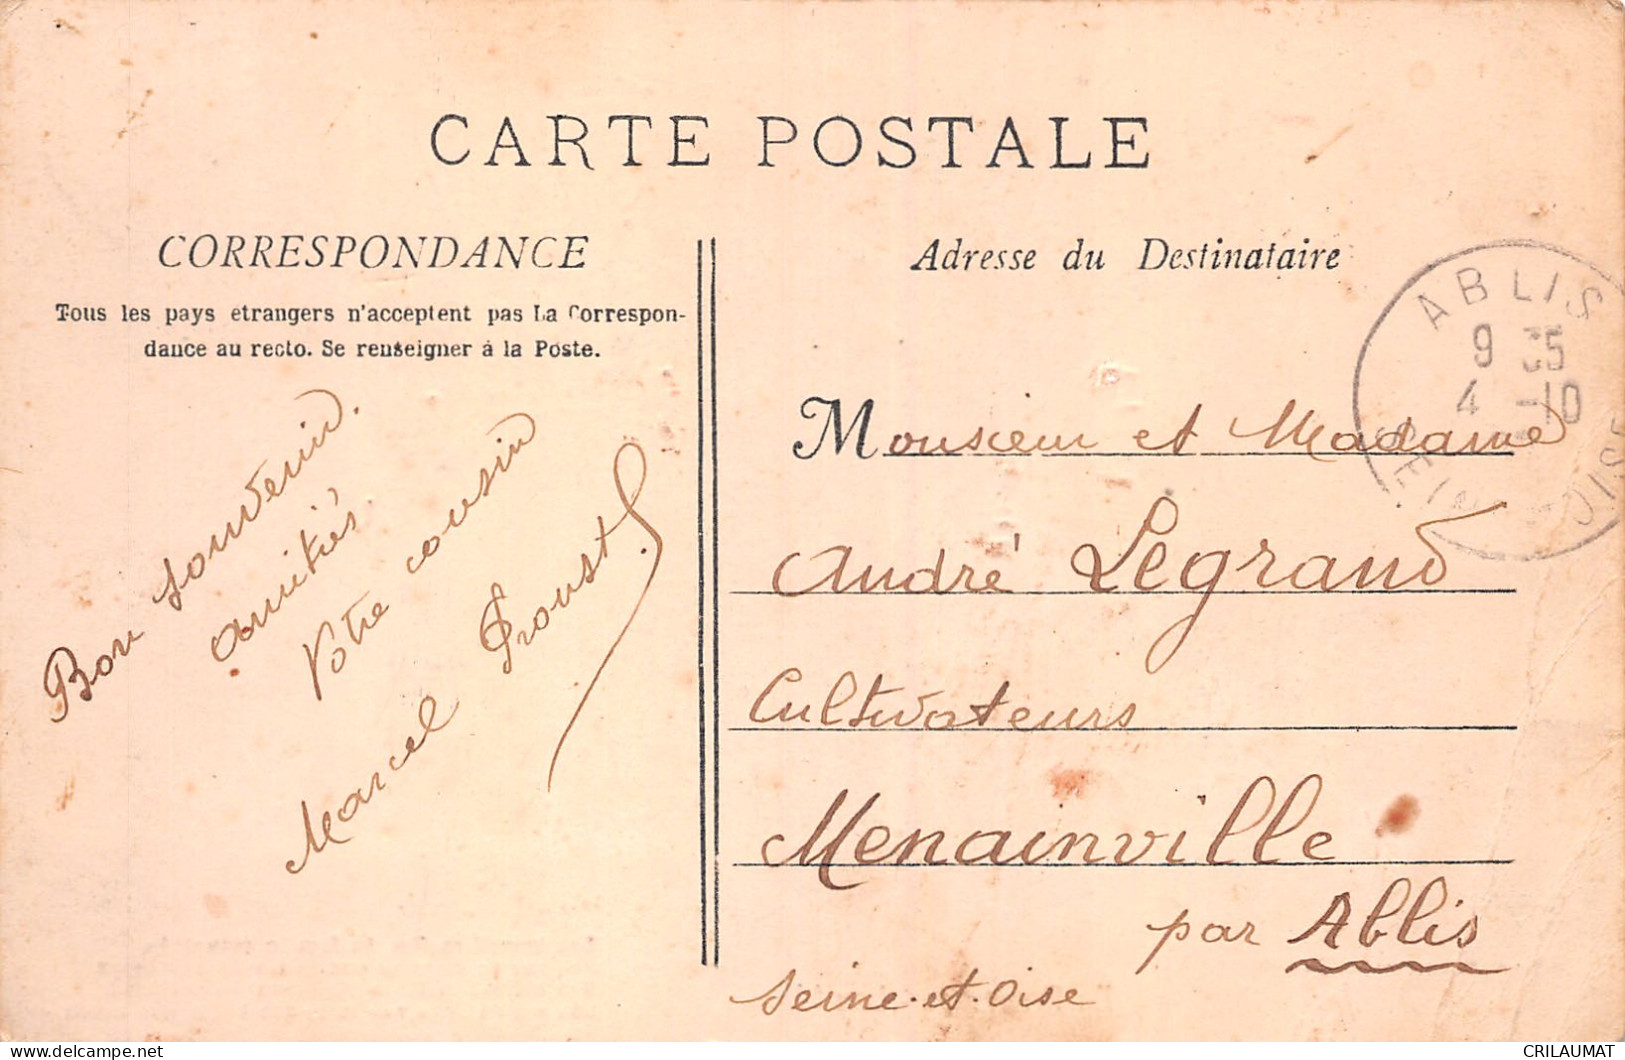 CARTE POSTALE
CORRESPONDANCE
Tous les pays etrangers n'acceptent pas La Correspon-
dance au recto. Se renseigner à la Poste.
Bon souvenir.
amitiés
Votre cousin
Marcel Proust
Adresse du Destinataire
ABLIS
9 35
4 -10
Monsieur et Madame
André Legrand
Cultivateurs
Menainville
par Ablis
Seine-et-Oise
CRILAUMAT